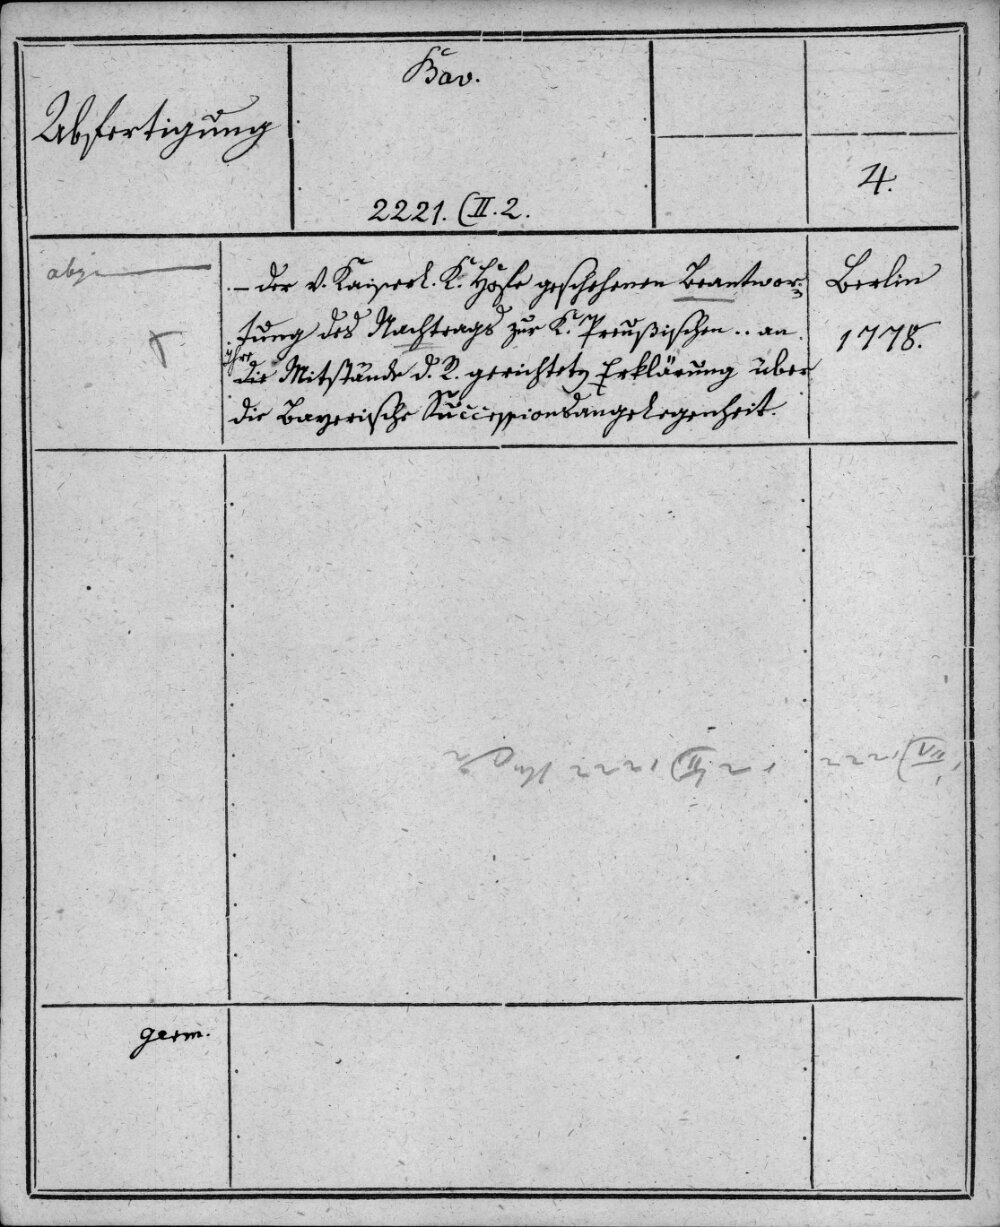 Bav.
Abfertigung
4.
2221. (II.2.
– der v. Kaiserl. K. Hofe geschehenen Beantwor-
tung des Nachtrags zur K. Preußischen .. an
ihre
die Mitstände d. R. gerichtete Erklärung über
die Bayerische Successionsangelegenheit.
Berlin
1778.
germ.